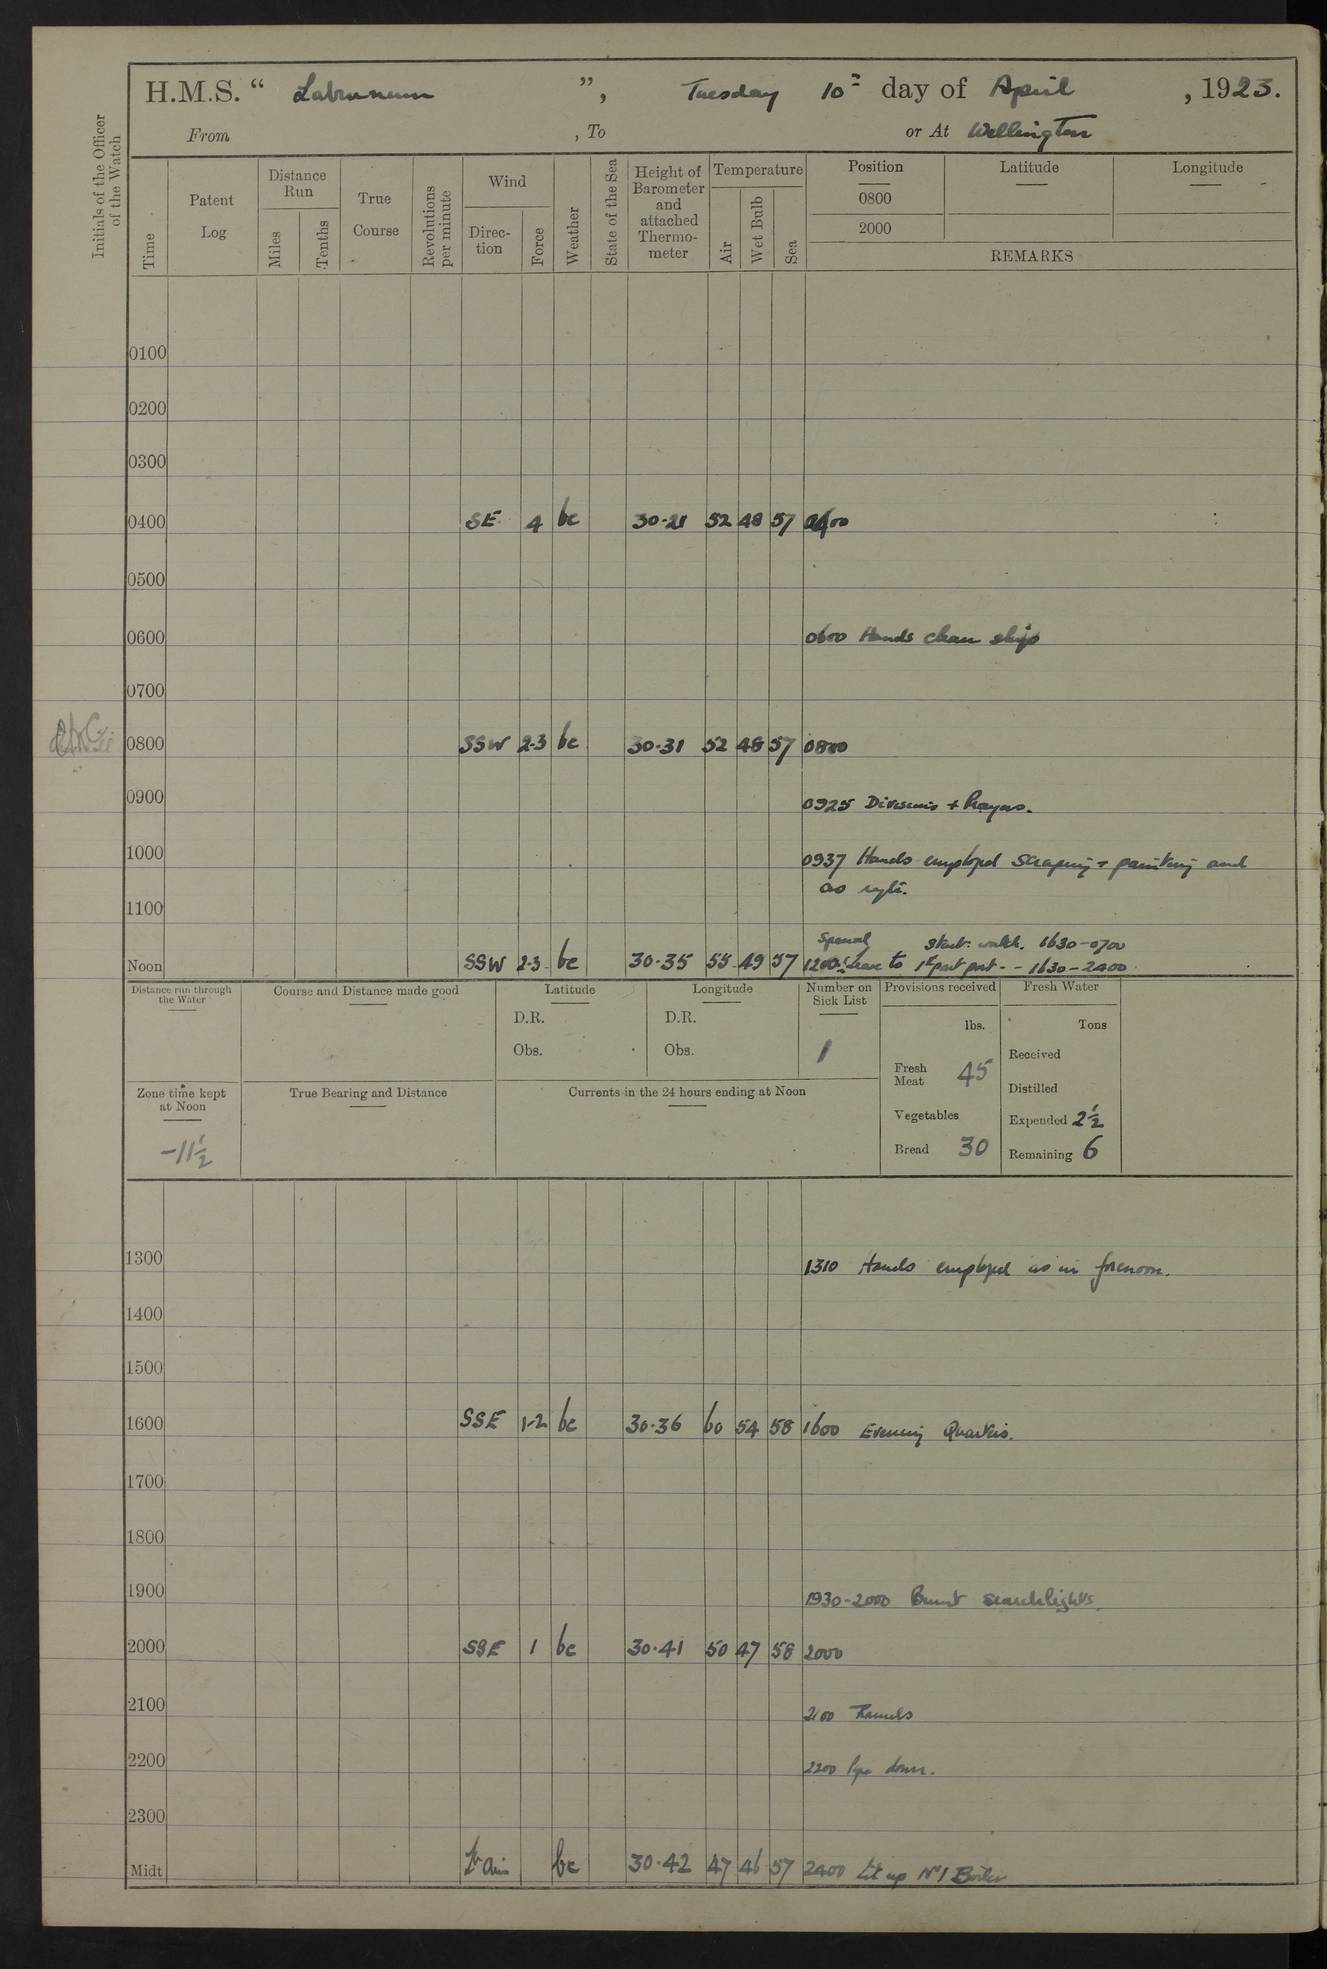 H.M.S. “ Laburnum ”, Tuesday 10th day of April , 1923.
From , To or At Wellington
Initials of the Officer of the Watch
Time
Patent Log
Distance Run
Miles
Tenths
True Course
Revolutions per minute
Wind
Direc-tion
Force
Weather
State of the Sea
Height of Barometer and attached Thermo-meter
Temperature
Air
Wet Bulb
Sea
Position
Latitude
Longitude
0800
2000
REMARKS
0100
0200
0300
0400 SE 4 bc 30·21 52 48 57 0400
0500
0600 0600 Hands clean ship
0700
0800 SSW 2-3 bc 30·31 52 48 57 0800
0900 0925 Divisions + Prayers.
1000 0937 Hands employed scraping + painting and
as reqte.
1100
Special Starb: watch. 1630-0700
Noon SSW 2-3 bc 30·35 55 49 57 1200: leave to 1st part port - - 1630-2400
Distance run through the Water
Course and Distance made good
Latitude
D.R.
Obs.
Longitude
D.R.
Obs.
Number on Sick List
1
Provisions received
lbs.
Fresh Meat 45
Vegetables
Bread 30
Fresh Water
Tons
Received
Distilled
Expended 2½
Remaining 6
Zone time kept at Noon
-11½
True Bearing and Distance
Currents in the 24 hours ending at Noon
1300 1310 Hands employed as in forenoon.
1400
1500
1600 SSE 1-2 bc 30·36 60 54 58 1600 Evening Quarters.
1700
1800
1900 1930-2000 Burnt searchlights.
2000 SSE 1 bc 30·41 50 47 58 2000
2100 2100 Rounds
2200 2200 Pipe down.
2300
Midt Lt airs bc 30·42 47 46 57 2400 Lit up No 1 Boiler